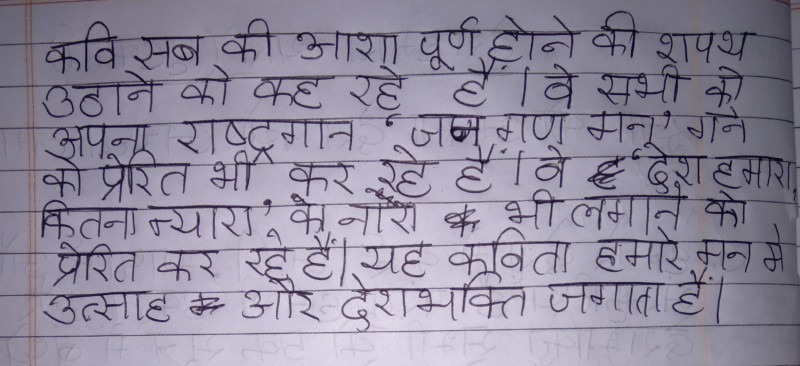 कवि सब की आशा पूर्ण होने की शपथ
उठाने को कह रहे हैं। वे सभी को
अपना राष्ट्रगान 'जन गण मन' गाने
को प्रेरित भी कर रहे हैं। वे 'देश हमारा
कितना न्यारा' के नारे भी लगाने को
प्रेरित कर रहे हैं। यह कविता हमारे मन मे
उत्साह और देशभक्ति जगाता है।